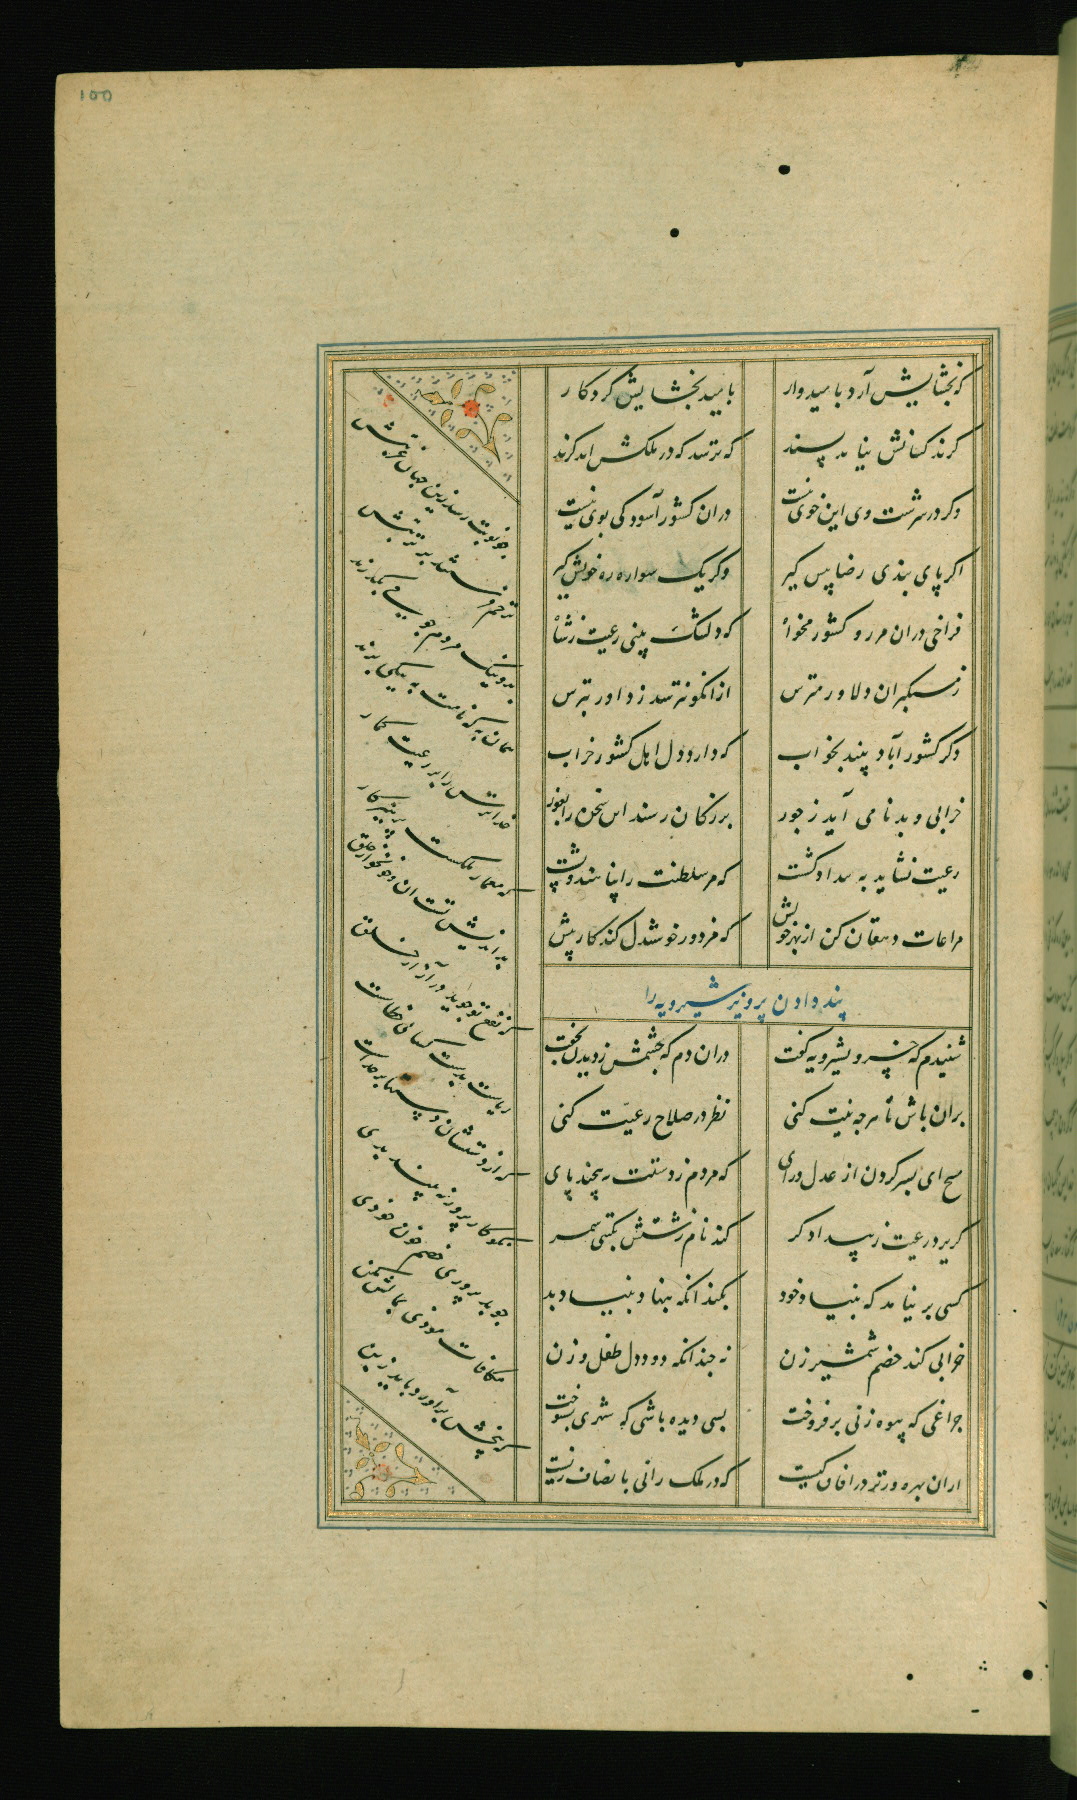 100
که بخشایش آرد بامیدوار بامید بخشایش کردکار
کزند کسانش نیاید پسند که ترسد که در ملکش اید کزند
وکر در سرشت وی این خوی نیست دران کشور آسودکی بوی نیست
اکر پای بندی رضا پیش کیر وکر یک سواره ره خویش کیر
فراخی دران مرز و کشور مخواه که دلتنک بینی رعیت ز شاه
ز مستکبران دلاور مترس ازان کو نترسد ز داور بترس
دکر کشور آباد بیند بخواب که دارد دل اهل کشور خراب
خرابی و بدنامی آید ز جور بزرکان رسند این سخن را بغور
رعیت نشاید به بیداد کشت که مر سلطنت را پناهند و پشت
مراعات دهقان کن از بهر خویش که مزدور خوشدل کند کار بیش
پند دادن پرویز شیرویه را
شنیدم که خسرو بشیرویه کفت دران دم که چشمش ز دیدن بخفت
بران باش تا هرچه نیت کنی نظر در صلاح رعیّت کنی
مپیچ ای پسر کردن از عدل و رای که مردم ز دستت نپیچند پای
کریزد رعیت ز بیدادکر کند نام زشتش بکیتی سمر
بسی بر نیامد که بنیاد خود بکند انکه بنهاد بنیاد بد
خرابی کند خصم شمشیر زن نه چندانکه دود دل طفل و زن
چراغی که بیوه زنی بر فروخت بسی دیده باشی که شهری بسوخت
ازان بهره ورتر در افاق کیست که در ملک رانی بانصاف زیست
چو نوبت رسد زین جهان غربتش
ترحم فرستند بر تربتش
بد و نیک مردم چو می بکذرند
همان به که نامت به نیکی برند
خداترس را بر رعیت کمار
که معمار ملکست پرهیزکار
بداندیش تست ان و خونخوار خلق
که نفع تو جوید در آزار خلق
ریاست بدست کسانی خطاست
که از دستشان دستها بر خداست
نکوکار پرور نبیند بدی
چو بد پروری خصم خون خودی
مکافات موذی بمالش مکن
که بیخش برآورد باید ز بن